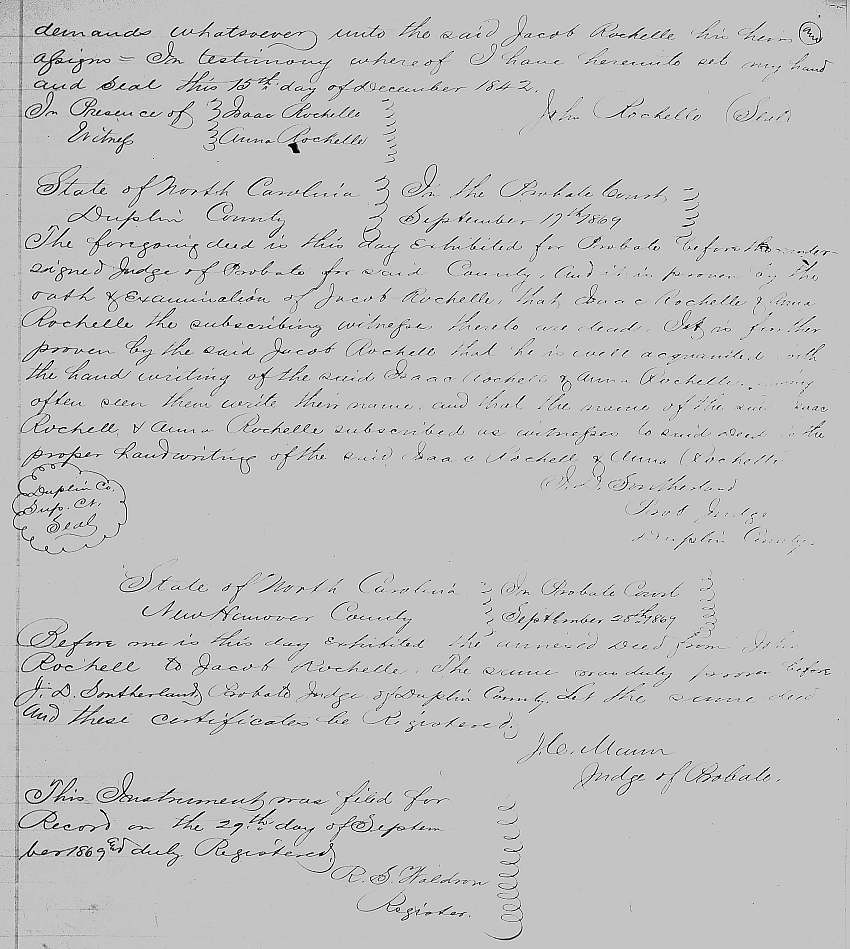 demands whatsoever unto the said Jacob Rochelle his heirs and
assigns = In testimony whereof I have hereunto set my hand
and Seal this 15th day of December 1842.
In Presence of } Isaac Rochelle John Rochelle (Seal)
Witness } Anna Rochelle
State of North Carolina } In the Probate Court
Duplin County } September 17th 1869
The foregoing deed is this day Exhibited for Probate before the under-
signed Judge of Probate for said County. And it is proven by the
oath & Examination of Jacob Rochelle, that Isaac Rochelle & Anna
Rochelle the subscribing witnesses thereto are dead. It is further
proven by the said Jacob Rochell that he is well acquainted with
the hand writing of the said Isaac Rochell & Anna Rochelle, having
often seen them write their name, and that the name of the said Isaac
Rochell, & Anna Rochelle subscribed as witnesses to said deed is the
proper handwriting of the said Isaac Rochell & Anna Rochelle
J. D. Southerland
Prob Judge
Duplin County.
Duplin Co.
Sup. Ct.
Seal
State of North Carolina } In Probate Court
New Hanover County } September 28th 1869
Before me is this day Exhibited the annexed Deed from John
Rochell to Jacob Rochelle. The same was duly proven before
J. D. Southerland Probate Judge of Duplin County. Let the same deed
and these certificates be Registered.
J. C. Mann
Judge of Probate.
This Instrument was filed for
Record on the 29th day of Septem
ber 1869 & duly Registered
R. S. Waldron
Register.